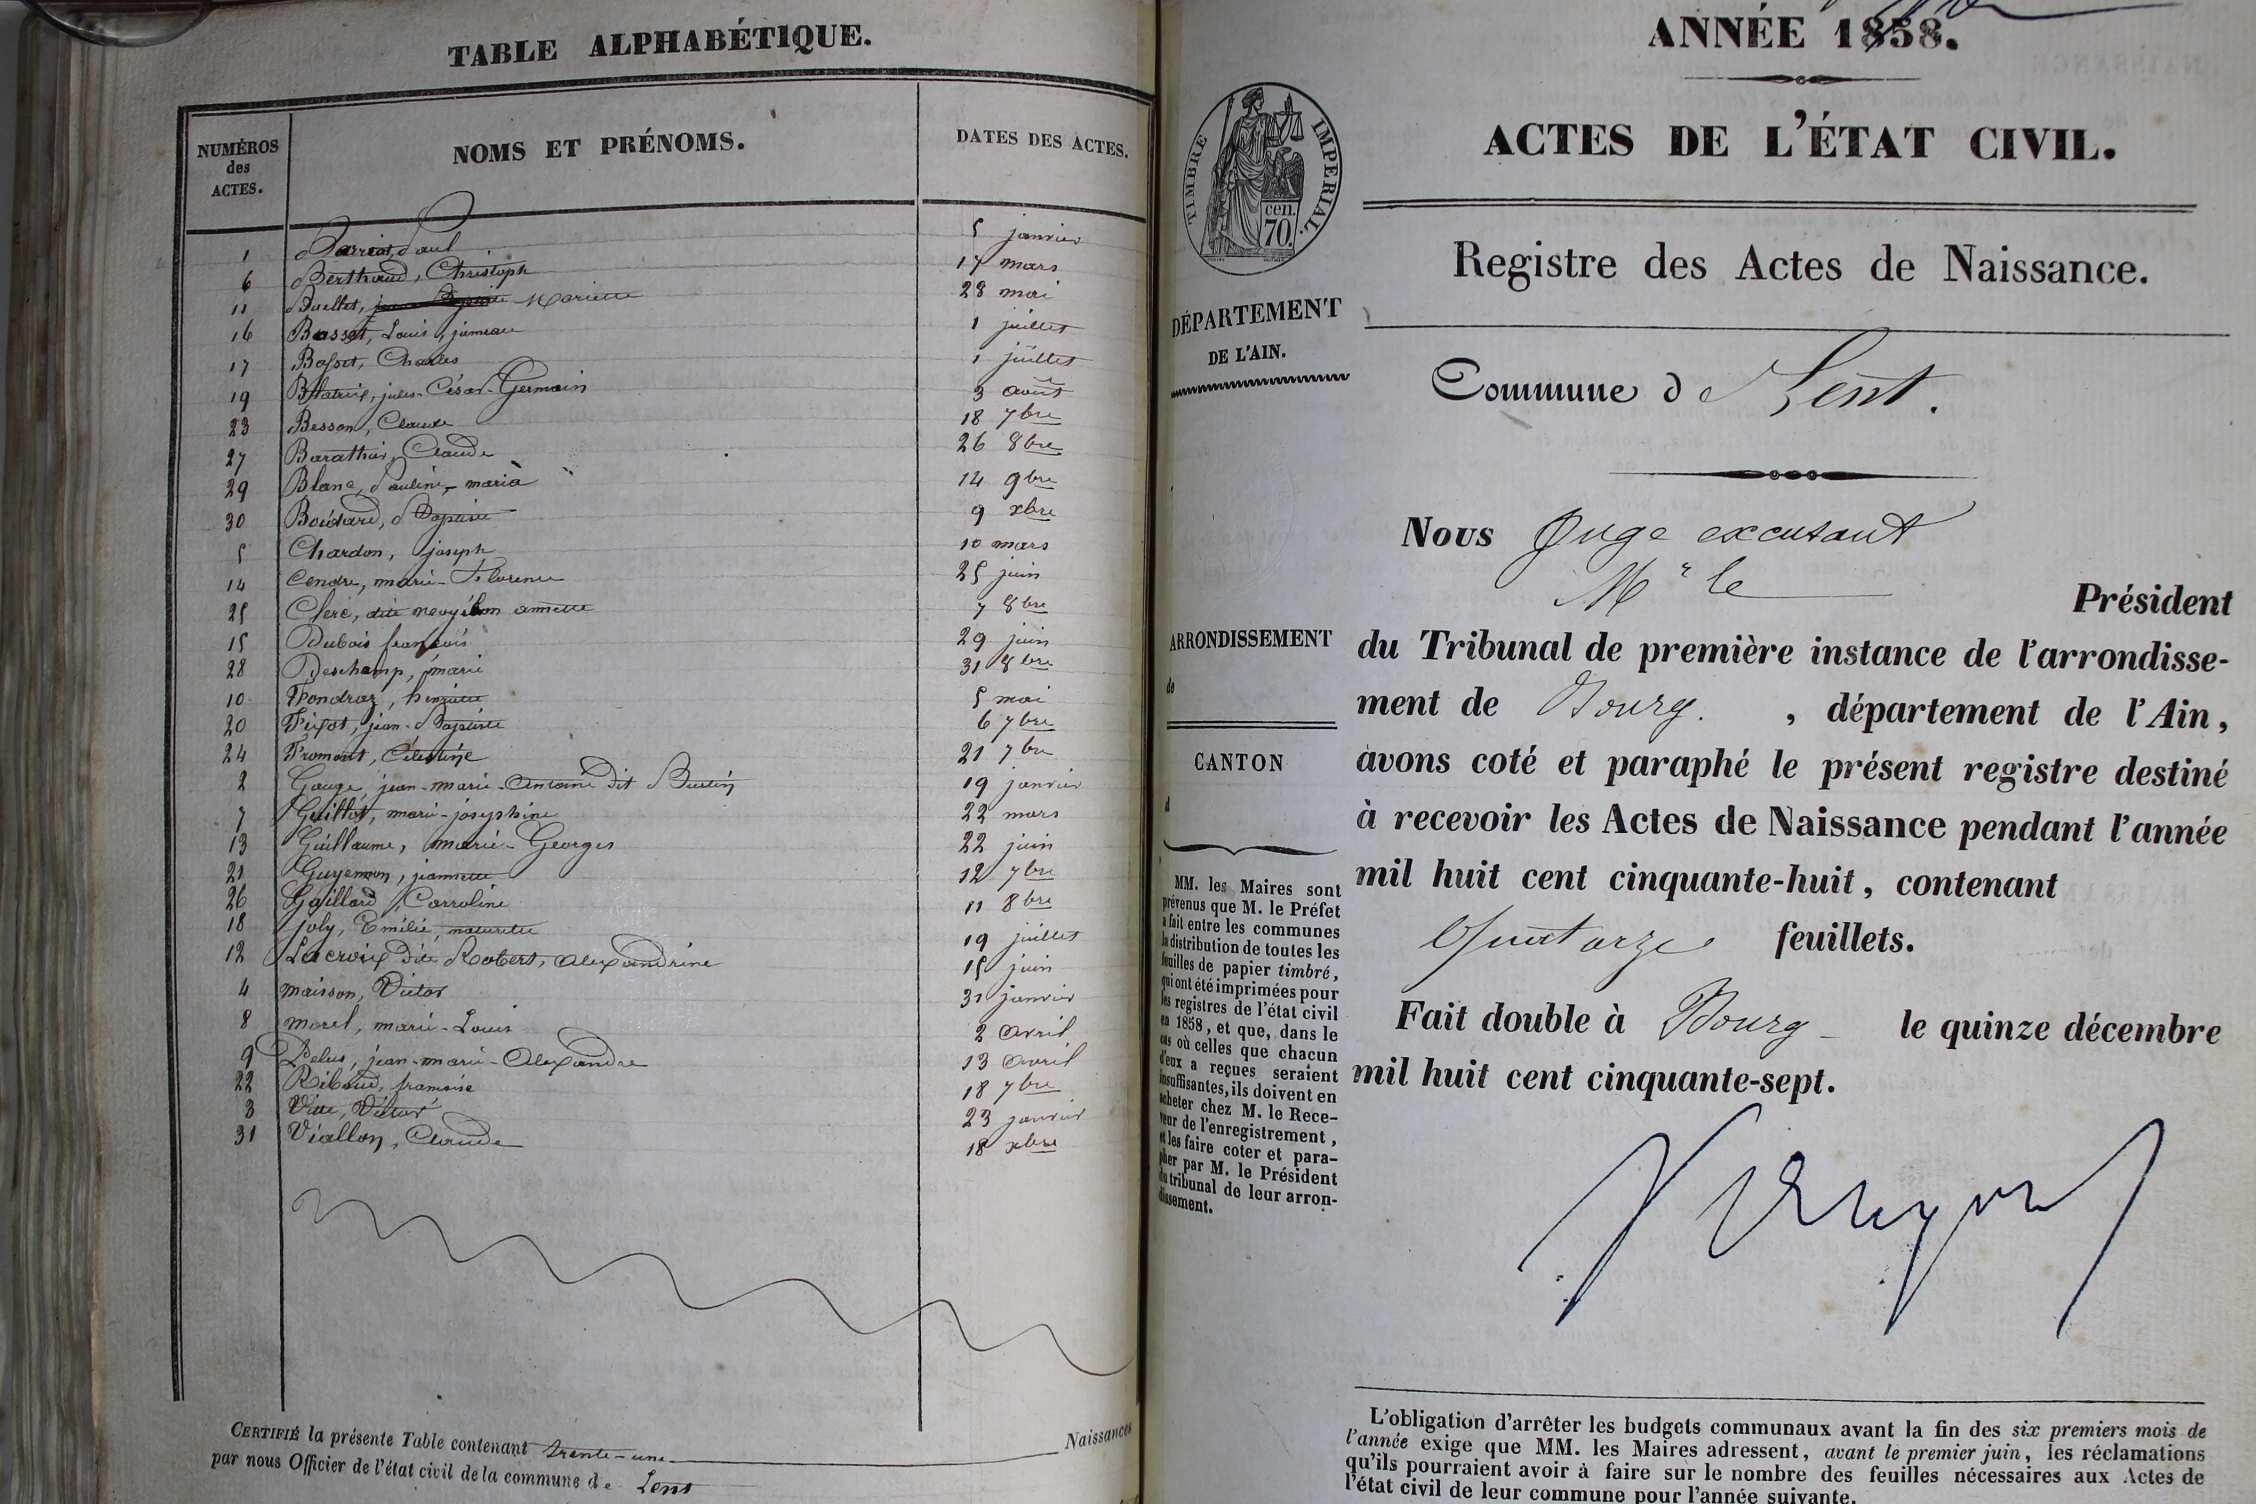 TABLE ALPHABÉTIQUE.
NUMÉROS des ACTES. NOMS ET PRÉNOMS. DATES DES ACTES.
1 Paul 5 janvier
6 Berthaud, Christoph 17 mars
11 Buellet, Mariette 28 mai
16 Basset, Louis, jumeau 1 juillet
17 Basset, Charles 1 juillet
19 Blatrix, jules-César-Germain 3 août
23 Besson, Claude 18 7bre
27 Barathier, Claude 26 8bre
29 Blanc, Pauline-maria 14 9bre
30 Baptiste 9 xbre
5 Chardon, joseph 10 mars
14 Cendre, marie-Florence 25 juin
25 Clerc, dite annette 7 8bre
15 Dubois françois 29 juin
28 Deschamp, marie 31 8bre
10 Fondraz, henriette 5 mai
20 jean-Baptiste 6 7bre
24 Fromont, Célestine 21 7bre
2 Gauge, jean-marie-Antoine dit 19 janvier
7 Guillot, marie-joséphine 22 mars
13 Guillaume, marie-Georges 22 juin
21 Guyennon, jeannette 12 7bre
26 Gaillard, Carroline 11 8bre
18 joly, Emélie, naturelle 19 juillet
12 Lacroix dite Robert, alexandrine 15 juin
4 maisson, Victor 31 janvier
8 morel, marie-Louis 2 avril
9 Pelus, jean-marie-Alexandre 13 avril
22 Riboud, françoise 18 7bre
3 Vitte, Victor 23 janvier
31 Viallon, Claude 18 xbre
CERTIFIÉ la présente Table contenant trente-une Naissances
par nous Officier de l'état civil de la commune de Lent
ANNÉE 1858.
ACTES DE L'ÉTAT CIVIL.
TIMBRE IMPÉRIAL.
cen.
70.
Registre des Actes de Naissance.
DÉPARTEMENT
DE L'AIN.
Commune d Lent.
Nous Juge excusant
Mr le Président
ARRONDISSEMENT
de
du Tribunal de première instance de l'arrondisse-
ment de Bourg. , département de l'Ain,
CANTON
d
avons coté et paraphé le présent registre destiné
à recevoir les Actes de Naissance pendant l'année
mil huit cent cinquante-huit, contenant
Quatorze feuillets.
Fait double à Bourg le quinze décembre
mil huit cent cinquante-sept.
MM. les Maires sont
prévenus que M. le Préfet
a fait entre les communes
la distribution de toutes les
feuilles de papier timbré,
qui ont été imprimées pour
les registres de l'état civil
en 1858, et que, dans le
cas où celles que chacun
d'eux a reçues seraient
insuffisantes, ils doivent en
acheter chez M. le Rece-
veur de l'enregistrement,
et les faire coter et para-
pher par M. le Président
du tribunal de leur arron-
dissement.
L'obligation d'arrêter les budgets communaux avant la fin des six premiers mois de
l'année exige que MM. les Maires adressent, avant le premier juin, les réclamations
qu'ils pourraient avoir à faire sur le nombre des feuilles nécessaires aux Actes de
l'état civil de leur commune pour l'année suivante.